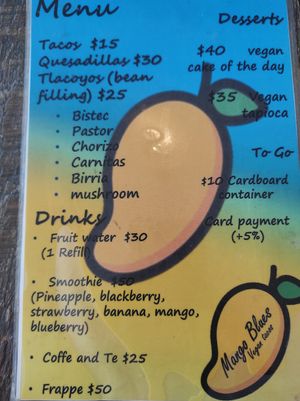 Menu
Tacos $15
Quesadillas $30
Tlacoyos (bean
filling) $25
• Bistec
• Pastor
• Chorizo
• Carnitas
• Birria
• mushroom
Drinks
• Fruit water $30
(1 Refill)
• Smoothie $50
(Pineapple, blackberry,
strawberry, banana, mango,
blueberry)
• Coffe and Te $25
• Frappe $50
Desserts
$40 vegan
cake of the day
$35 Vegan
tapioca
To Go
$10 Cardboard
container
Card payment
(+5%)
Mango Blues
Vegan